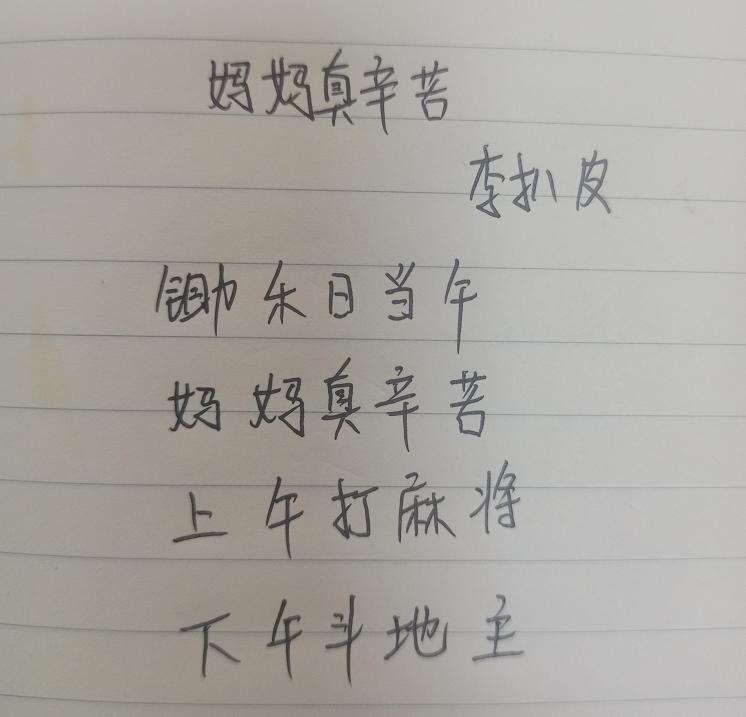 妈妈真辛苦
李扒皮
锄禾日当午
妈妈真辛苦
上午打麻将
下午斗地主